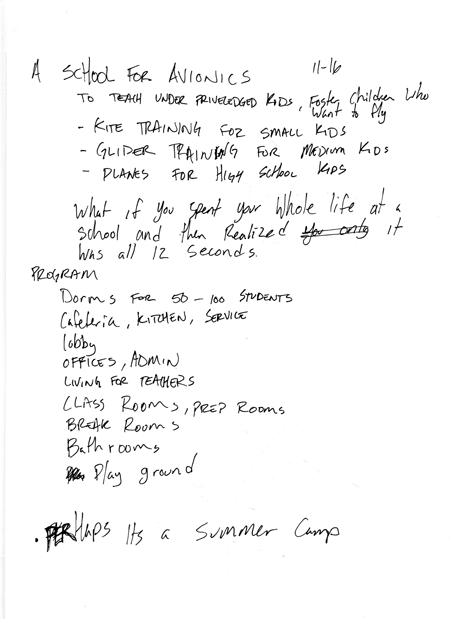 A SCHOOL FOR AVIONICS 11-16
TO TEACH UNDER PRIVELEDGED KIDS, Foster Children Who
Want to fly
- KITE TRAINING FOR SMALL KIDS
- GLIDER TRAINING FOR MEDIUM KIDS
- PLANES FOR HIGH SCHOOL KIDS
What if you spent your whole life at a
school and then Realized you only it
was all 12 seconds.
PROGRAM
Dorms FOR 50 - 100 STUDENTS
Cafeteria, KITCHEN, SERVICE
lobby
OFFICES, ADMIN
LIVING FOR TEACHERS
CLASS Rooms, PREP ROOMS
BREAK Rooms
Bathrooms
Play ground
. PERHaps Its a Summer Camp